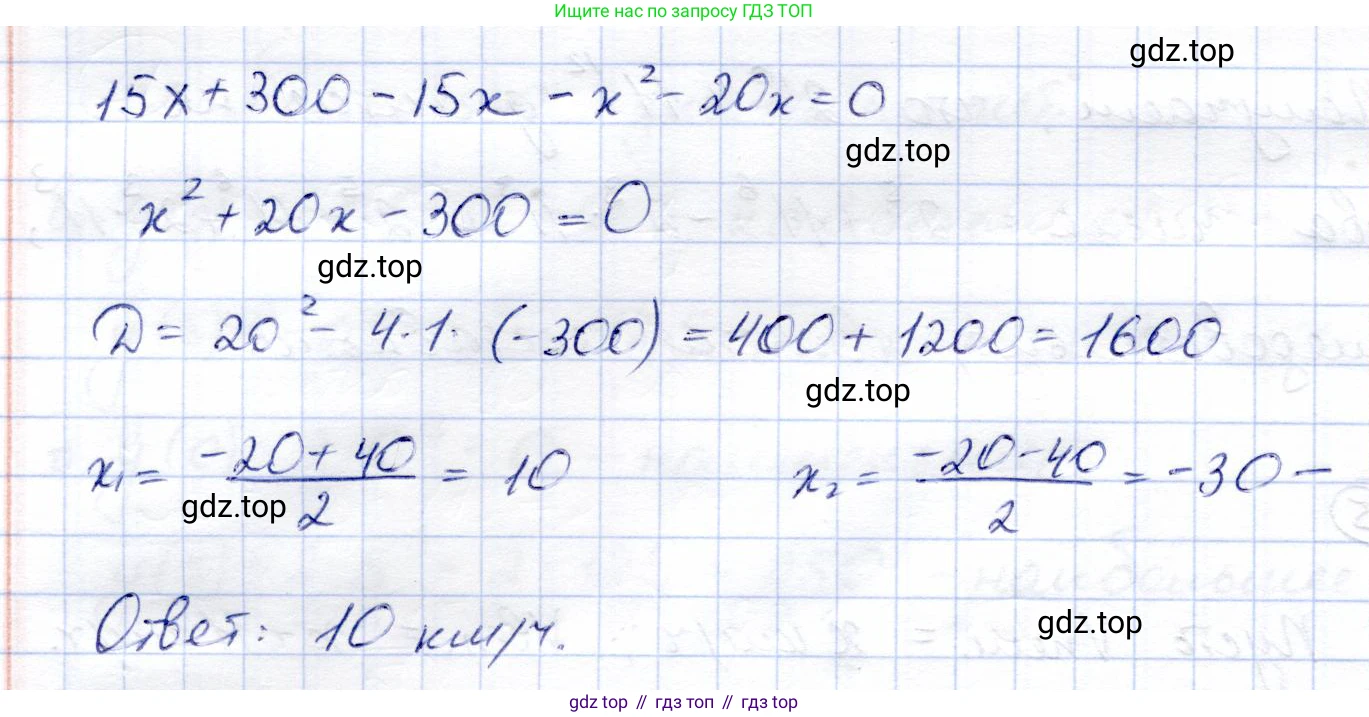 Ищите нас по запросу ГДЗ ТОП
gdz.top
15x + 300 - 15x - x² - 20x = 0
gdz.top
x² + 20x - 300 = 0
gdz.top
D = 20² - 4·1·(-300) = 400 + 1200 = 1600
gdz.top
x₁ = (-20 + 40)/2 = 10 x₂ = (-20 - 40)/2 = -30 -
gdz.top
Ответ: 10 км/ч.
gdz.top
gdz top // гдз топ // gdz top